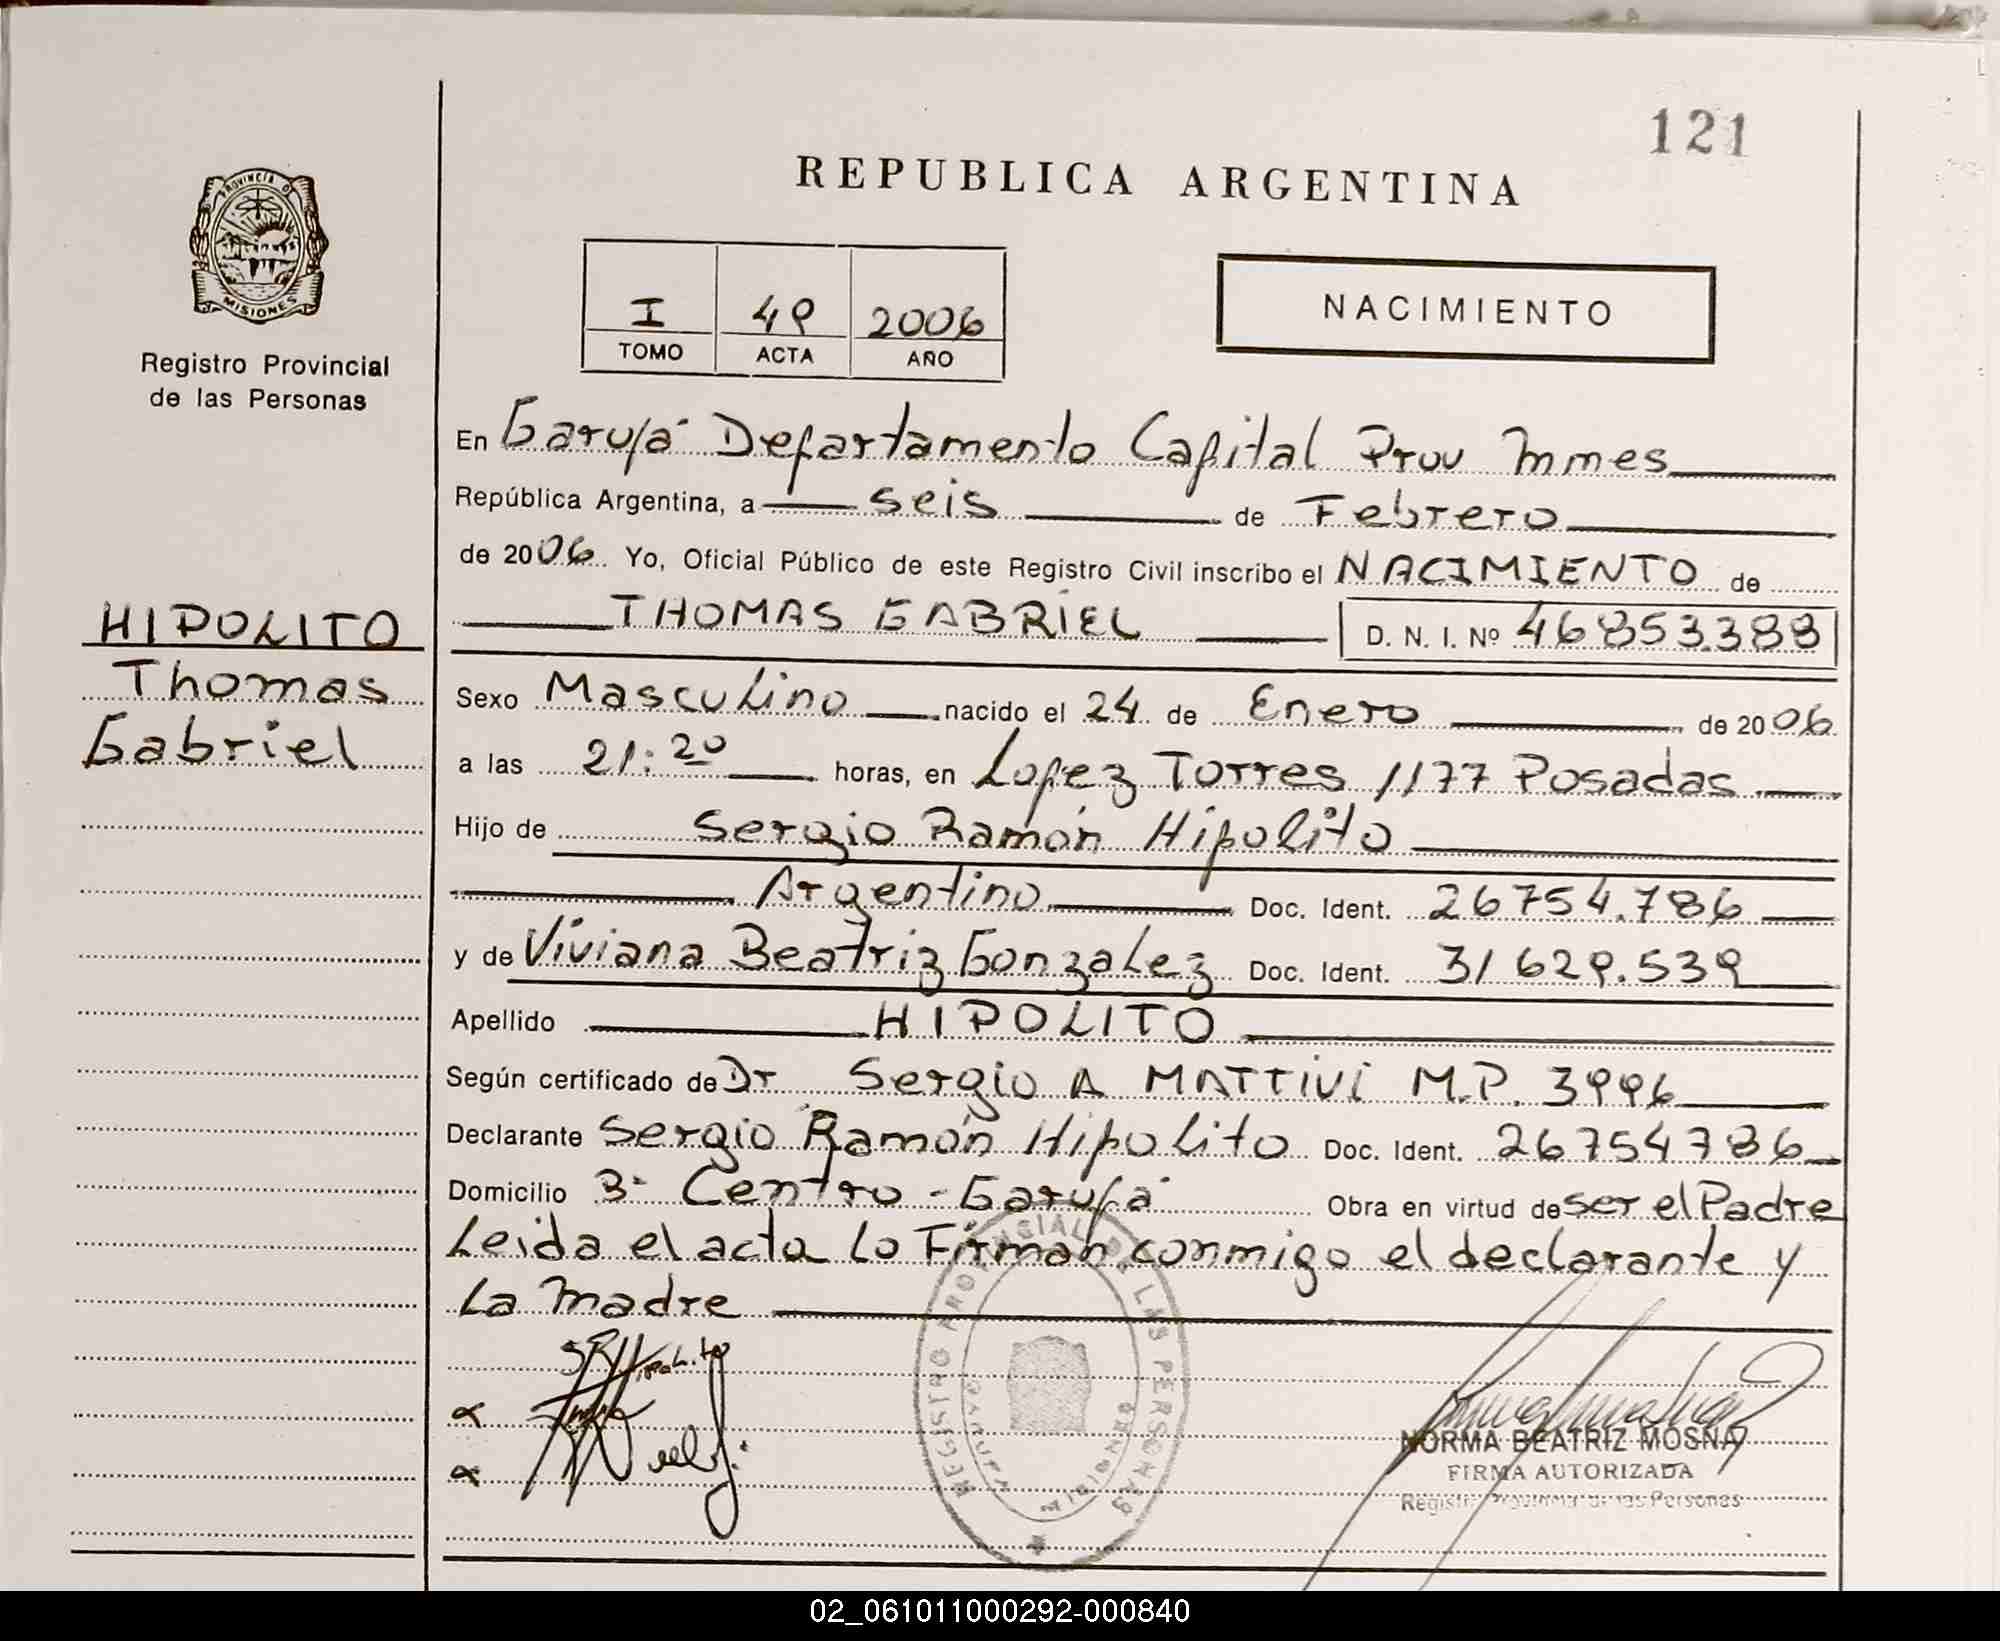 121
REPUBLICA ARGENTINA
PROVINCIA D
MISIONES
Registro Provincial
de las Personas
I 49 2006
TOMO ACTA AÑO
NACIMIENTO
En Garupá Departamento Capital Prov Mmes
República Argentina, a seis de Febrero
de 2006 Yo, Oficial Público de este Registro Civil inscribo el NACIMIENTO de
THOMAS GABRIEL D. N. I. Nº 46853.388
HIPOLITO
Thomas
Gabriel
Sexo Masculino nacido el 24 de Enero de 2006
a las 21:20 horas, en Lopez Torres 1177 Posadas
Hijo de Sergio Ramón Hipolito
Argentino Doc. Ident. 26754.786
y de Viviana Beatriz Gonzalez Doc. Ident. 31629.539
Apellido HIPOLITO
Según certificado de Dr Sergio A MATTIVI M.P. 3996
Declarante Sergio Ramón Hipolito Doc. Ident. 26754786
Domicilio Bº Centro - Garupá Obra en virtud de ser el Padre
Leida el acta lo Firman conmigo el declarante y
la madre
REGISTRO PROVINCIAL DE LAS PERSONAS
SRHipolito
NORMA BEATRIZ MOSNA
FIRMA AUTORIZADA
Registro Provincial de las Personas
02_061011000292-000840